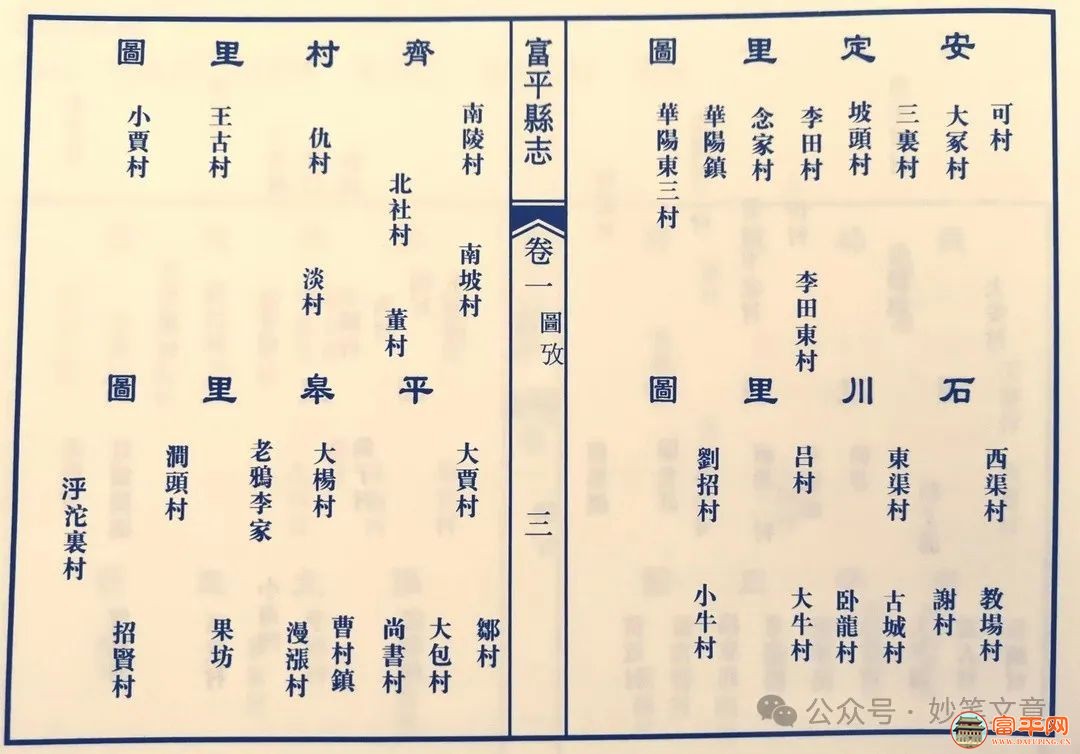 安定里圖
可村
大冢村
三裏村
坡頭村
李田村
李田東村
念家村
華陽鎮
華陽東三村
石川里圖
西渠村
教場村
謝村
東渠村
古城村
卧龍村
吕村
大牛村
劉招村
小牛村
富平縣志
卷一
圖攷
三
齊村里圖
南陵村
南坡村
北社村
董村
仇村
淡村
王古村
小賈村
平皋里圖
大賈村
鄒村
大包村
尚書村
大楊村
曹村鎮
漫漲村
老鴉李家
果坊
澗頭村
招賢村
浮沱裏村
公众号 · 妙笔文章
富平网
WWW.DAFUPING.CN